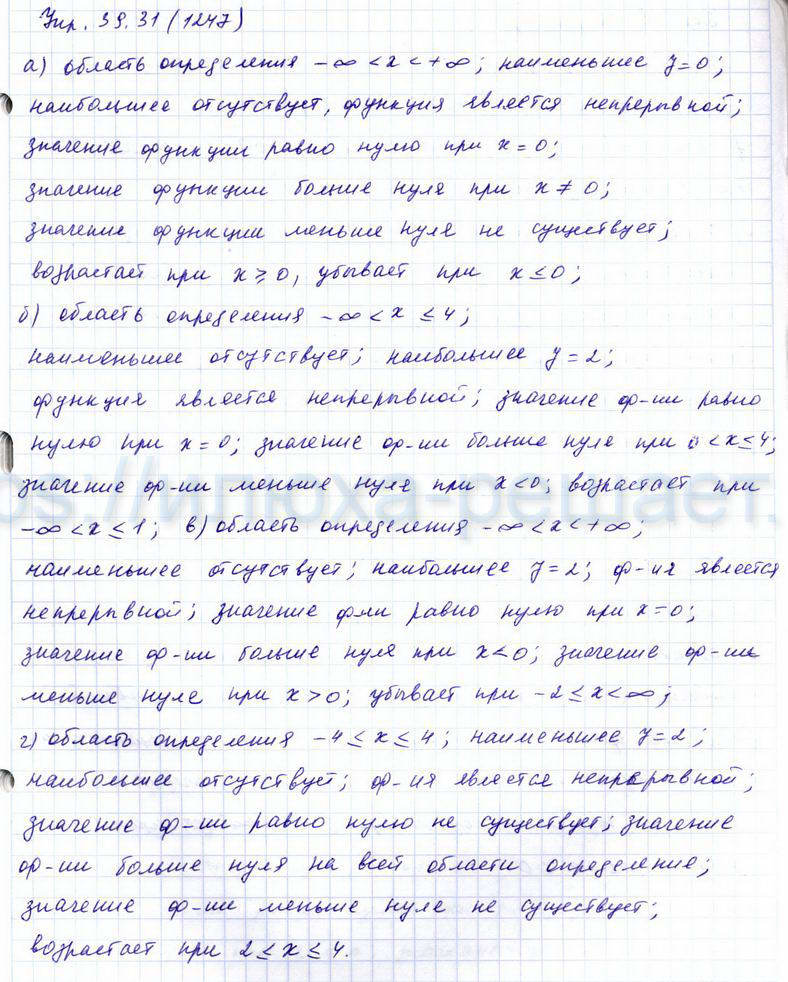 Упр. 39.31 (1247)
а) область определения -∞ < x < +∞; наименьшее y = 0;
наибольшее отсутствует, функция является непрерывной;
значение функции равно нулю при x = 0;
значение функции больше нуля при x ≠ 0;
значение функции меньше нуля не существует;
возрастает при x ≥ 0, убывает при x ≤ 0;
б) область определения -∞ < x ≤ 4;
наименьшее отсутствует; наибольшее y = 2;
функция является непрерывной; значение ф-ии равно
нулю при x = 0; значение ф-ии больше нуля при 0 < x ≤ 4;
значение ф-ии меньше нуля при x < 0; возрастает при
-∞ < x ≤ 1; в) область определения -∞ < x < +∞;
наименьшее отсутствует; наибольшее y = 2; ф-ия является
непрерывной; значение ф-ии равно нулю при x = 0;
значение ф-ии больше нуля при x < 0; значение ф-ии
меньше нуля при x > 0; убывает при -2 ≤ x < ∞;
г) область определения -4 ≤ x ≤ 4; наименьшее y = 2;
наибольшее отсутствует; ф-ия является непрерывной;
значение ф-ии равно нулю не существует; значение
ф-ии больше нуля на всей области определение;
значение ф-ии меньше нуля не существует;
возрастает при 2 ≤ x ≤ 4.